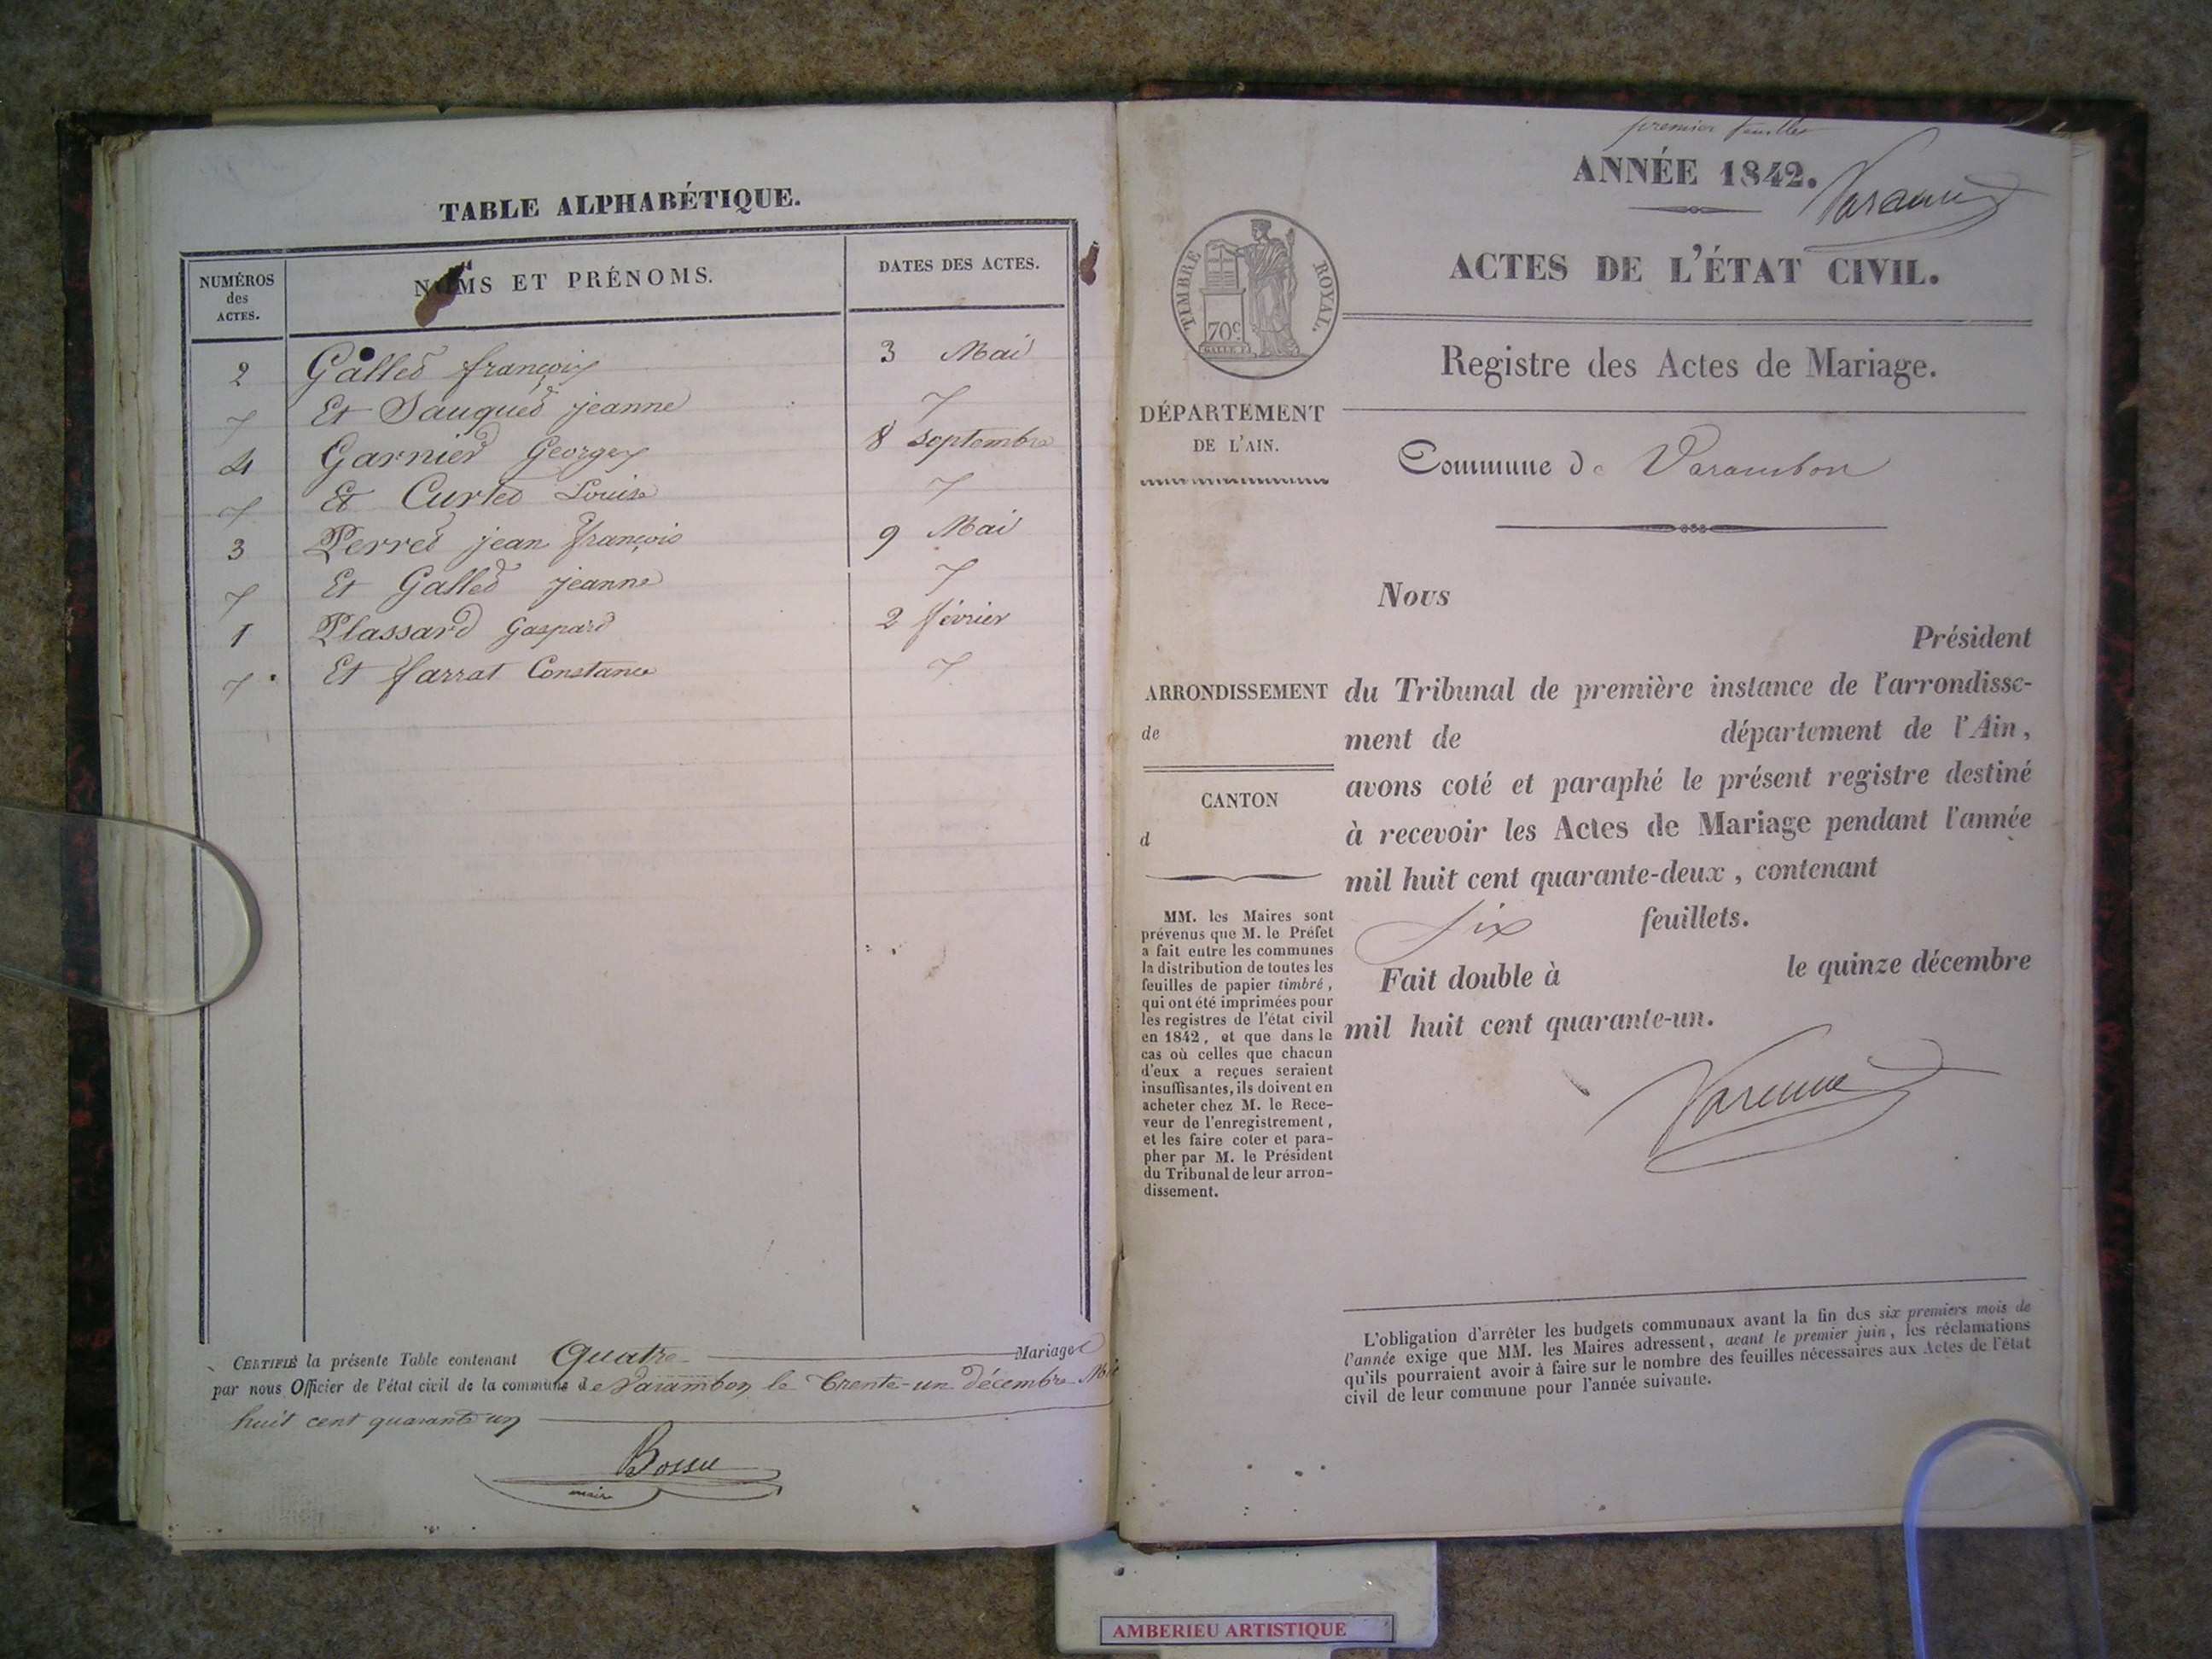 TABLE ALPHABÉTIQUE.
NUMÉROS
des
ACTES.
NOMS ET PRÉNOMS.
DATES DES ACTES.
2 Gallet françois 3 Mai
Et jeanne
4 Garnier Georges 8 septembre
Et Curtet Louise
3 Perret jean françois 9 Mai
Et Gallet jeanne
1 Plassard Gaspard 2 février
Et farrat Constance
CERTIFIÉ la présente Table contenant Quatre Mariages
par nous Officier de l'état civil de la commune de Varambon le trente-un décembre Mil
huit cent quarante un
Bossu
maire
premier feuillet
ANNÉE 1842.
Varenne
ACTES DE L'ÉTAT CIVIL.
TIMBRE ROYAL.
70c
Registre des Actes de Mariage.
DÉPARTEMENT
DE L'AIN.
Commune de Varambon
Nous
Président
ARRONDISSEMENT
de
CANTON
d
du Tribunal de première instance de l'arrondisse-
ment de département de l'Ain,
avons coté et paraphé le présent registre destiné
à recevoir les Actes de Mariage pendant l'année
mil huit cent quarante-deux, contenant
six feuillets.
Fait double à le quinze décembre
mil huit cent quarante-un.
Varenne
MM. les Maires sont
prévenus que M. le Préfet
a fait entre les communes
la distribution de toutes les
feuilles de papier timbré,
qui ont été imprimées pour
les registres de l'état civil
en 1842, et que dans le
cas où celles que chacun
d'eux a reçues seraient
insuffisantes, ils doivent en
acheter chez M. le Rece-
veur de l'enregistrement,
et les faire coter et para-
pher par M. le Président
du Tribunal de leur arron-
dissement.
L'obligation d'arrêter les budgets communaux avant la fin des six premiers mois de
l'année exige que MM. les Maires adressent, avant le premier juin, les réclamations
qu'ils pourraient avoir à faire sur le nombre des feuilles nécessaires aux Actes de l'état
civil de leur commune pour l'année suivante.
AMBERIEU ARTISTIQUE